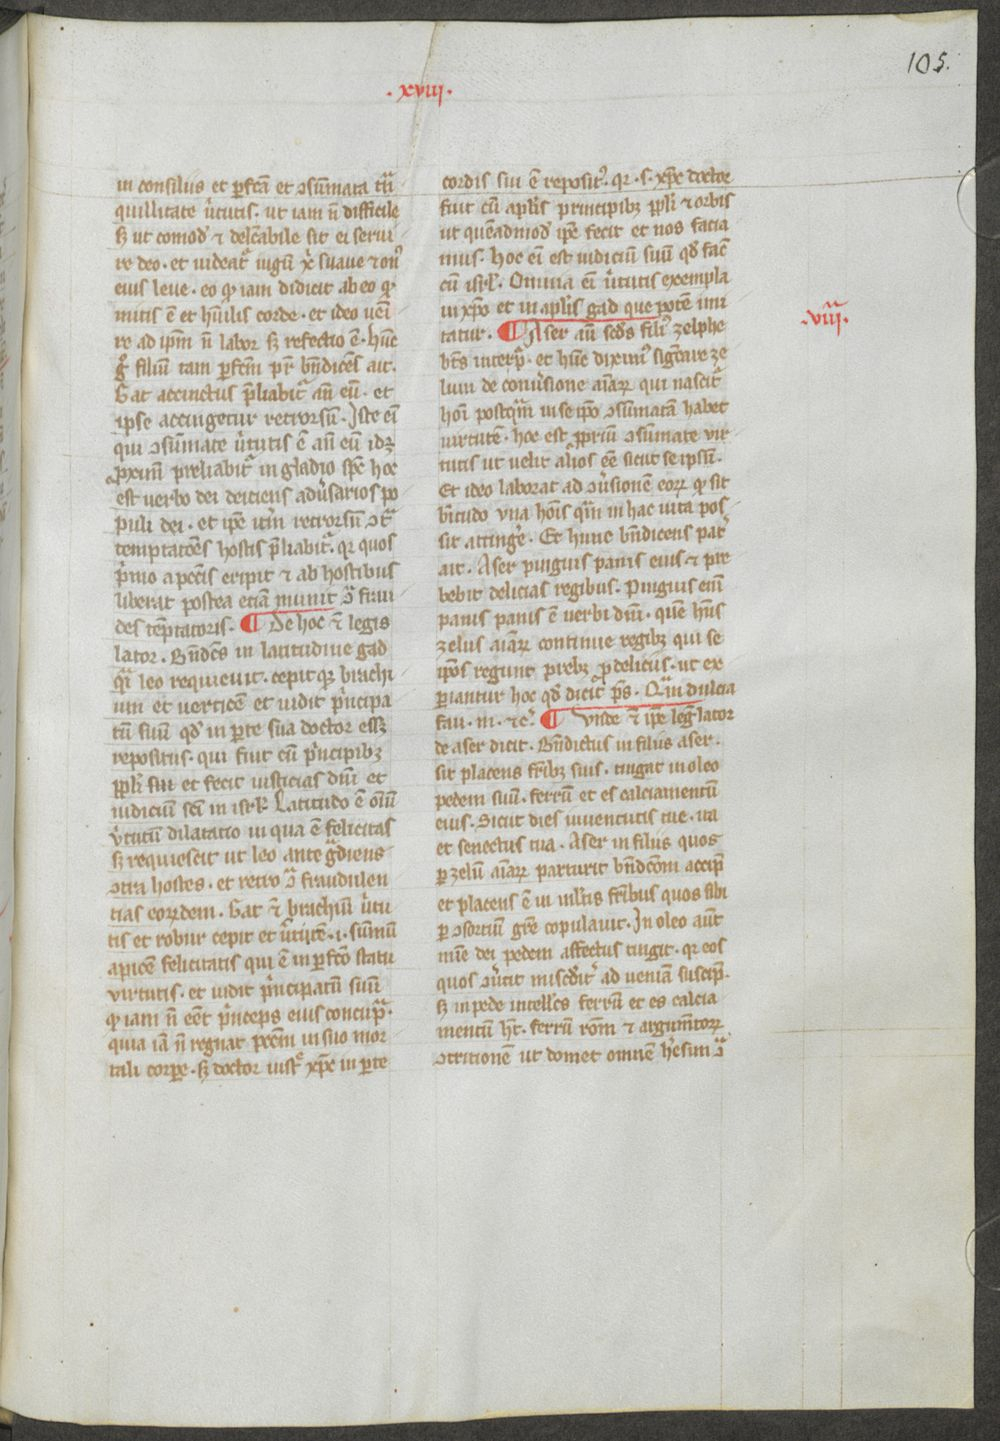 105.
.xviii.
in consiliis et ꝑfcā et ɔsūmata trā
quillitate v̓tutis. ut iam nō difficile
sꝫ ut comod̓ ⁊ delc̄abile sit ei serui
re deo. et uideat᷑ iugū xp̄i suaue ⁊ on᷒
eius leue. eo ꝙ iam didicit ab eo ꝙ
mitis ē et hu̓ilis corde. et ideo ueī
re ad ip̄m nō labor sꝫ refectio ē. hūc
gͦ filiū tam ꝑfcm̄ pr̄ bn̄dicēs ait.
Gat accinctus p̄liabit᷑ an̄ eū. et
ipse accingetur retrorsū. Iste eī
qui ɔsūmate v̓tutis ē an̄ eū idꝫ
ꝓximū preliabit᷑ in gladio spc̄ hoc
est uerbo dei deiciens adu̓sarios po
puli dei. et ip̄e itm̄ retrorsū ɔtᷓ
temptatōes hostis p̄liabit᷑. qꝛ quos
p̓mo a pctīs eripit ⁊ ab hostibus
liberat postea etiā munit ɔᷓ frau
des tēptatoris. ¶ De hoc ⁊̄ legis
lator. Bn̄dc̄s in latitudine gad
qᷓi leo requieuit. cepitqꝫ brachi
um et uerticē et uidit p̓ncipa
tū suū qd̓ in ꝑte sua doctor eēt
repositus. qui fuit cū p̓ncipibꝫ
ppl̓i sui et fecit iusticias dn̄i et
iudiciū sc̄m in isrl̓. Latitudo ē oīū
v̓tutū dilatatio in qua ē felicitas
sꝫ requiescit ut leo ante gᷓdiens
ɔtra hostes. et retro ɔᷓ fraudulen
tias eorꝝdem. Gat ⁊̄ brachiū v̓tu
tis et robur cepit et v̓ticē. i. sūmū
apicē felicitatis qui ē in ꝑfcō statu
virtutis. et uidit p̓ncipatū suū
ꝙ iam nō eēt p̓nceps eius concup̄ᷓ.
quia iā nō regnat pctm̄ in suo mor
tali corpe. sꝫ doctor iustͤ xp̄c in ꝑte
cordis sui ē reposit᷒. qꝛ .s. xp̄c doctor
fuit cū apl̓is principibꝫ ppl̓i ⁊ orbis
ut quēadmod̓ ip̄e fecit et nos facia
mus. hoc eī est iudiciū suū qd̓ fac̄
cū isrl̓. Omnia eī v̓tutis exempla
in xp̄o et in apl̓is gad que potē imi
tatur. ¶ Aser aū scd̓s fili᷒ zelphe
bt̄s interp̄ᷓ. et hūc dixim᷒ sig̓care ze
lum de conu̓sione aīarꝝ qui nascit᷑
hoī postqᷓm in se ip̄o ɔsūmatā habet
virtutē. hoc est ꝓpriū ɔsūmate vir
tutis ut uelit al̓ios eē sicut se ipsū.
Et ideo laborat ad ɔu̓sionē eorꝝ ꝙ sit
bt̓itudo vna hoīs qᷓm in hac uita pos
sit attinge̓. Et hunc bn̄dicens pat̓
ait. Aser pinguis panis eius ⁊ pre
bebit delicias regibus. Pinguis eni
panis panis ē uerbi dīni. quē hn̄s
zelus aīarꝝ continue regibꝫ qui se
ip̄os regunt prebꝫ ꝓ deliciis. ut ex
ꝑiantur hoc qd̓ dicit᷑ p̄s. Qᷓm dulcia
fau. m. ⁊c̓. ¶ Vnde ⁊̄ ip̄e leg̓lator
de aser dicit. Bn̄dictus in filiis aser.
sit placens fr̄ibꝫ suis. tingat in oleo
pedem suū. ferrū et es calciamentū
eius. Sicut dies iuuentutis tue. ita
et senectus tua. Aser in filiis quos
ꝑ zelū aīarꝝ parturit bn̄dcōm accip̄
et placens ē in ml̓tis fr̄ibus quos sibi
ꝑ ɔsortiū gr̄e copulauit. In oleo aūt
mīe dei pedem affectus tingit. qꝛ eos
quos ɔu̓tit miscd̓it᷑ ad ueniā suscip̄.
sꝫ in pede intell̓cs ferrū et es calcia
mentū ht̄. ferrū rōm ⁊ argumtorꝝ
ɔtritionē ut domet omnē h̓esim ɔᷓ
.viiiᷓ.